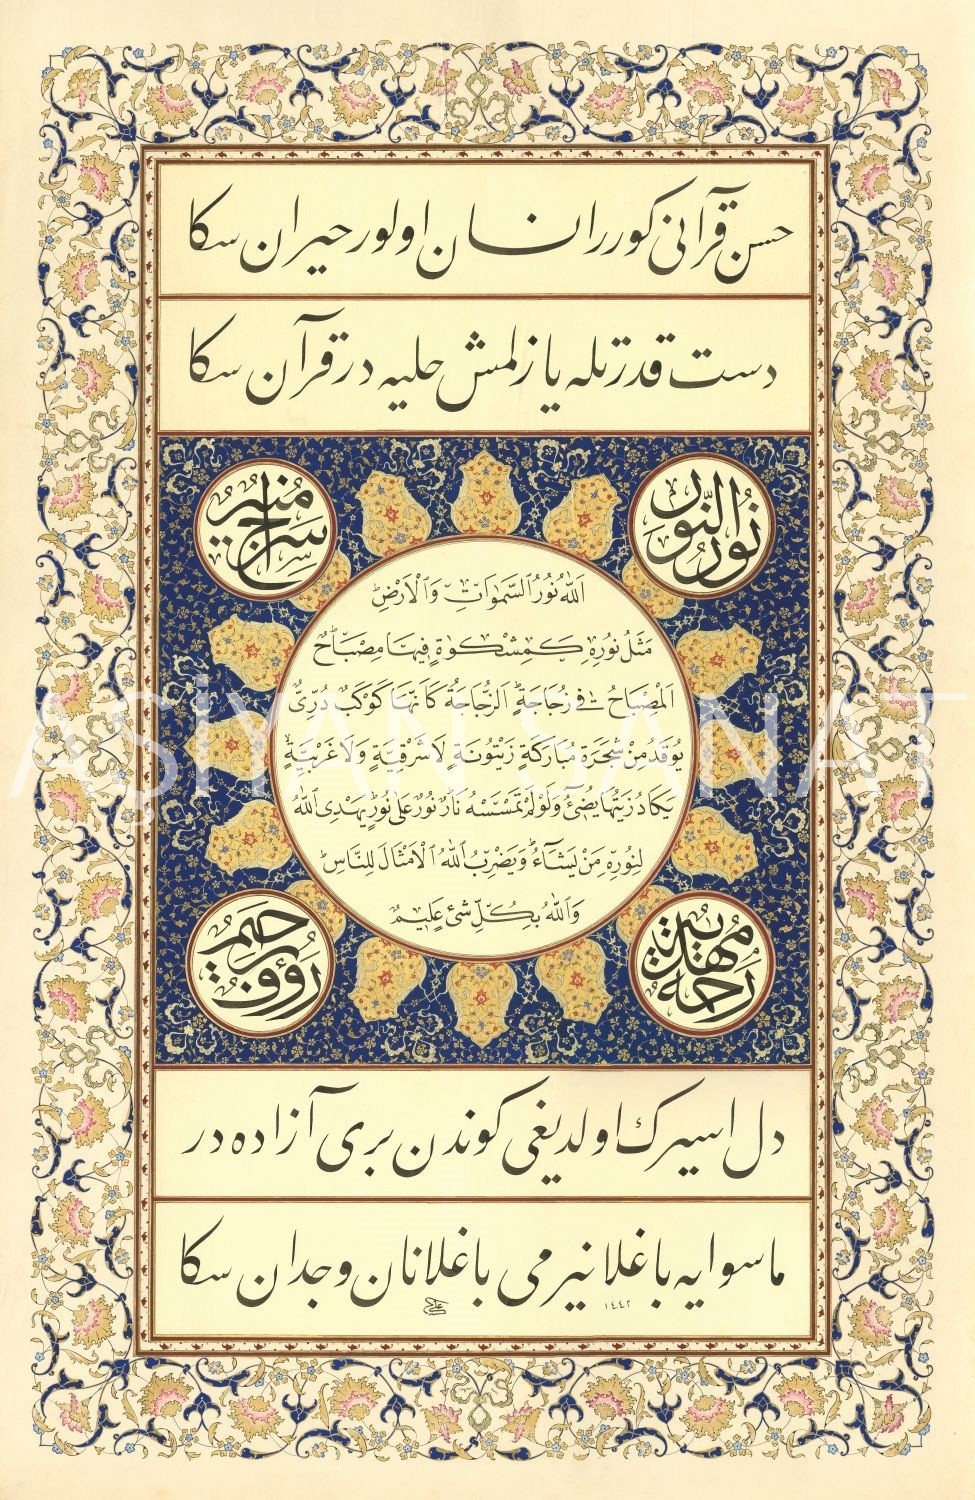 حسن قرآنی كورر انسان اولور حیران سكا
دست قدرتله یازلمش حلیه در قرآن سكا
نور النور
سراج منير
اَللّٰهُ نُورُ السَّمٰوَاتِ وَالْاَرْضِ
مَثَلُ نُورِهِ كَمِشْكٰوةٍ فِيهَا مِصْبَاحٌ
اَلْمِصْبَاحُ فِي زُجَاجَةٍ اَلزُّجَاجَةُ كَاَنَّهَا كَوْكَبٌ دُرِّيٌّ
يُوقَدُ مِنْ شَجَرَةٍ مُبَارَكَةٍ زَيْتُونَةٍ لَا شَرْقِيَّةٍ وَلَا غَرْبِيَّةٍ
يَكَادُ زَيْتُهَا يُضِيءُ وَلَوْ لَمْ تَمْسَسْهُ نَارٌ نُورٌ عَلٰى نُورٍ يَهْدِي اللّٰهُ
لِنُورِهِ مَنْ يَشَاءُ وَيَضْرِبُ اللّٰهُ الْاَمْثَالَ لِلنَّاسِ
وَاللّٰهُ بِكُلِّ شَيْءٍ عَلِيمٌ
رحمة مهدية
رؤوف رحيم
دل اسیرك اولدیغی كوندن بری آزاده در
ماسوایه باغلانیرمی باغلانان وجدان سكا
١٤٤٢
ASİYAN SANAT